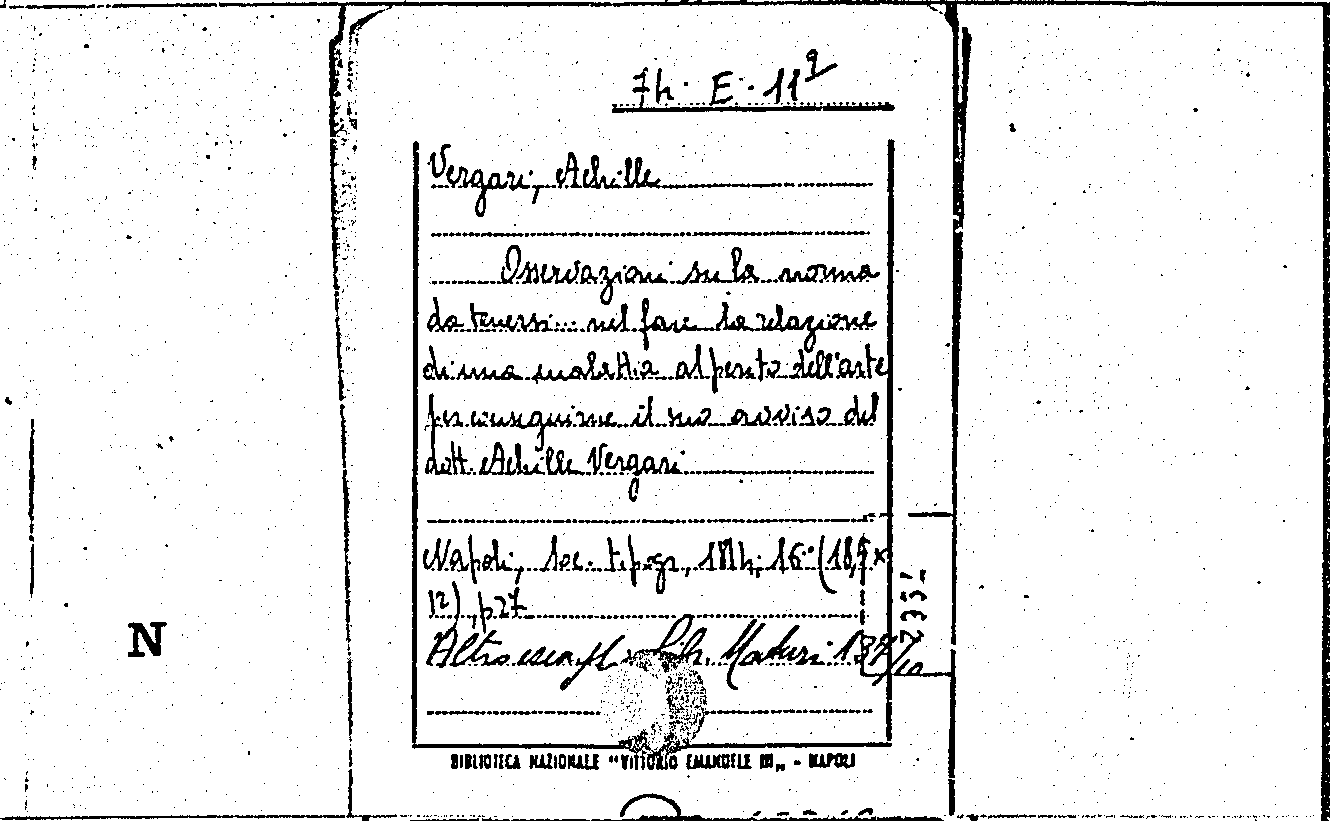 74. E. 11⁹
Vergari, Achille
Osservazioni su la norma
da tenersi... nel fare la relazione
di una malattia al perito dell'arte
per conseguirne il suo avviso del
dott. Achille Vergari
Napoli, Soc. tipogr, 16° (18,5 x
12), p. 27
Altro esempl. Lib. Maturi 137/10
N
BIBLIOTECA NAZIONALE "VITTORIO EMANUELE III„ - NAPOLI